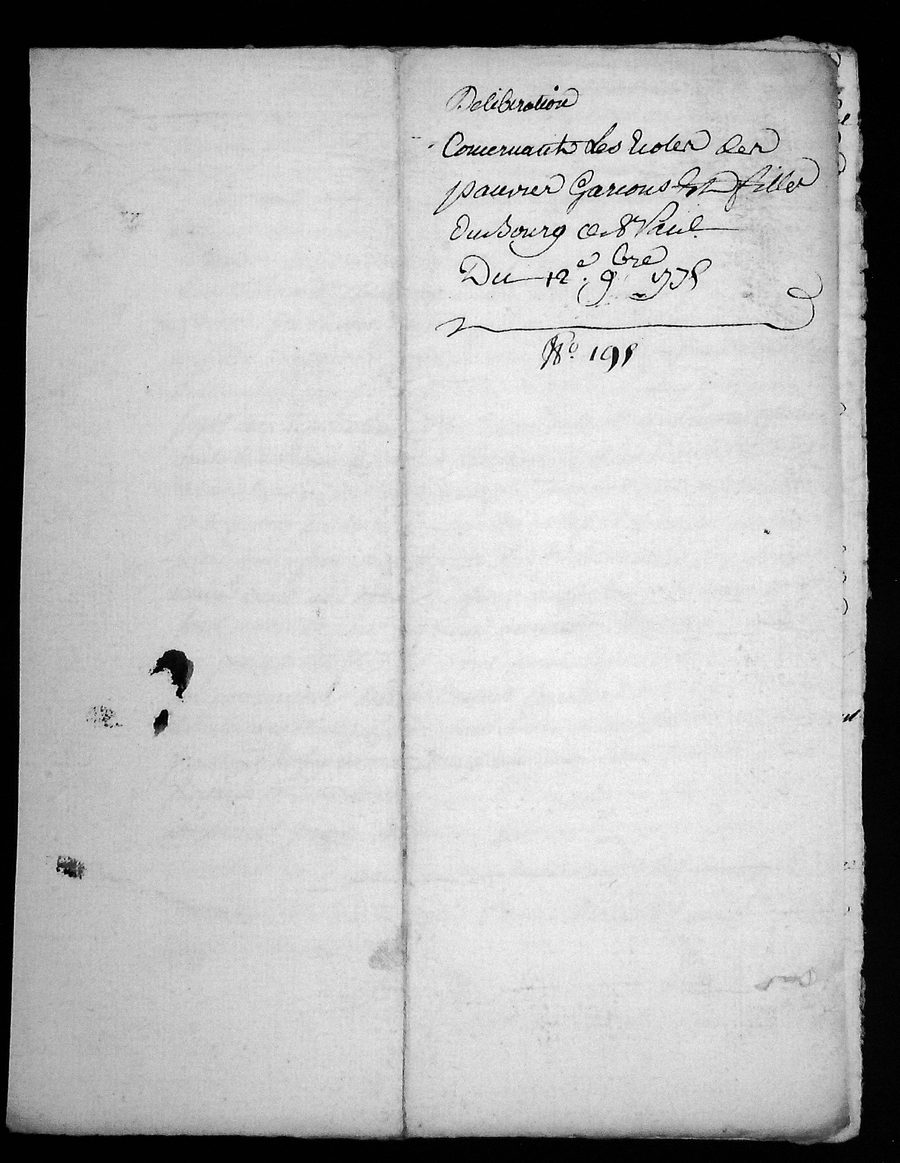 Deliberation
Concernant les Ecoles des
pauvres Garcons Et filles
Du Bourg de St Paul
Du 12e. 9bre 1775
No. 195